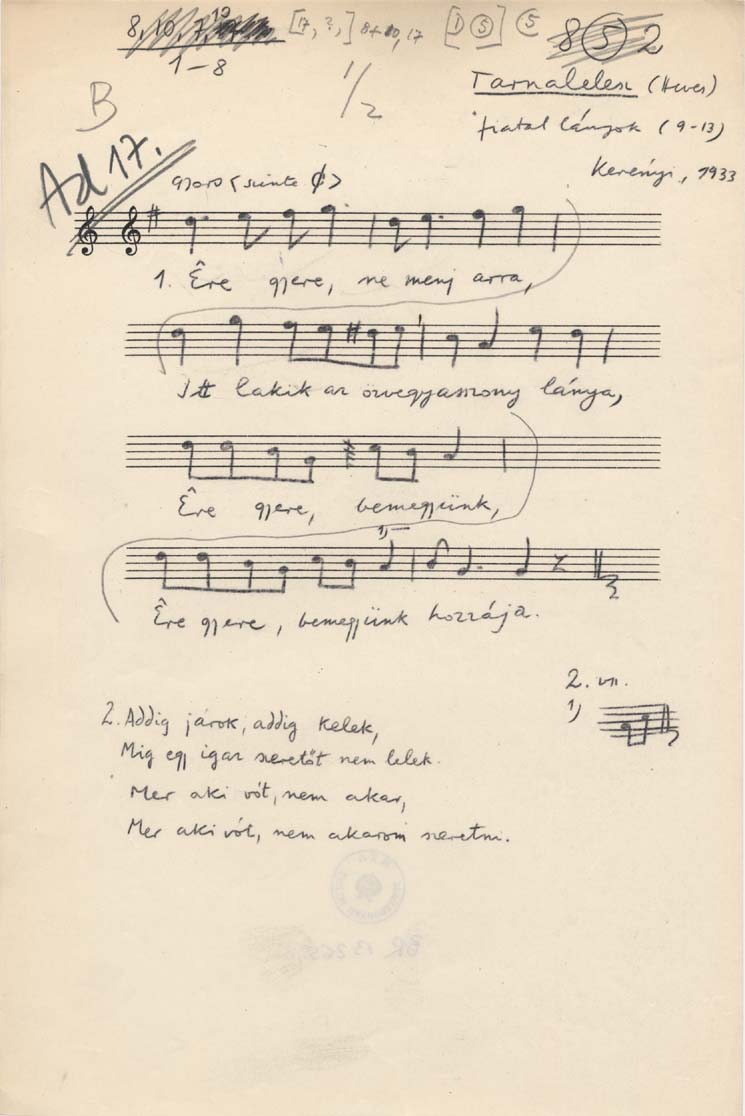 [17, ?,] 8+10, 17 [1 5] 5
8 5 2
1-8
1/2
B
Tarnalelesz (Heves)
fiatal lányok (9-13)
Kerényi, 1933
Ad 17.
1. Êre gyere, ne menj arra,
Itt lakik az özvegyasszony lánya,
Êre gyere, bemegyünk,
1)
Êre gyere, bemegyünk hozzája.
2. vsz.
1)
2. Addig járok, addig kelek,
Míg egy igaz szeretőt nem lelek.
Mer aki vót, nem akar,
Mer aki vót, nem akarom szeretni.